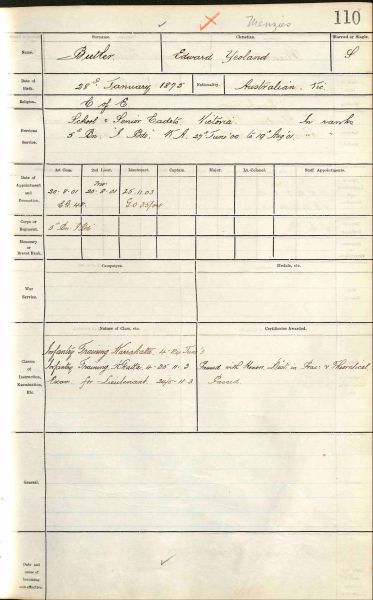 Menzies
110
Surname. Christian. Married or Single.
Name. Butler. Edward Yeoland S
Date of Birth. 28th January 1875 Nationality. Australian. Vic.
Religion. C of E
Previous Service. School & Senior Cadets Victoria In ranks
5th Bn. I. Bde. W.A. 27th June '00 to 19th Aug '01 " "
Date of Appointment and Promotion. 1st Com. 2nd Lieut. Lieutenant. Captain. Major. Lt.-Colonel. Staff Appointments.
Prov
20-8-01 20-8-01 25.11.03
G.G. 48. G.O. 35/04
Corps or Regiment. 5th Bn. I. Bde
Honorary or Brevet Rank.
Campaigns. Medals, etc.
War Service.
Names of Class, etc. Certificates Awarded.
Classes of Instruction, Examination, Etc.
Infantry Training Karrakatta
Infantry Training, K'Katta. 4-25 11.3 Passed with Honors, Dist. in Prac. & Theoretical
Exam. for Lieutenant. 24/5-11 3 Passed.
General.
Date and cause of becoming non-effective.